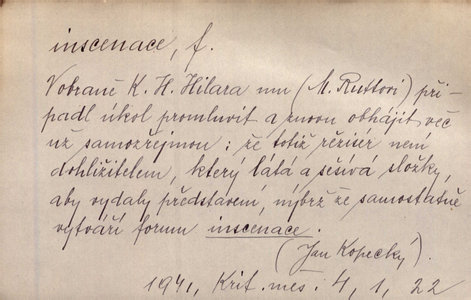 inscenace, f.
V obraně K. H. Hilara mu (M. Ruttovi) při-
padl úkol promluvit a znovu obhájit věc
už samozřejmou: že totiž režisér není
dohližitelem, který látá a sešívá složky,
aby vydaly představení, nýbrž že samostatně
vytváří forum inscenace.
(Jan Kopecký).
1941, Krit. měs. 4, 1, 22